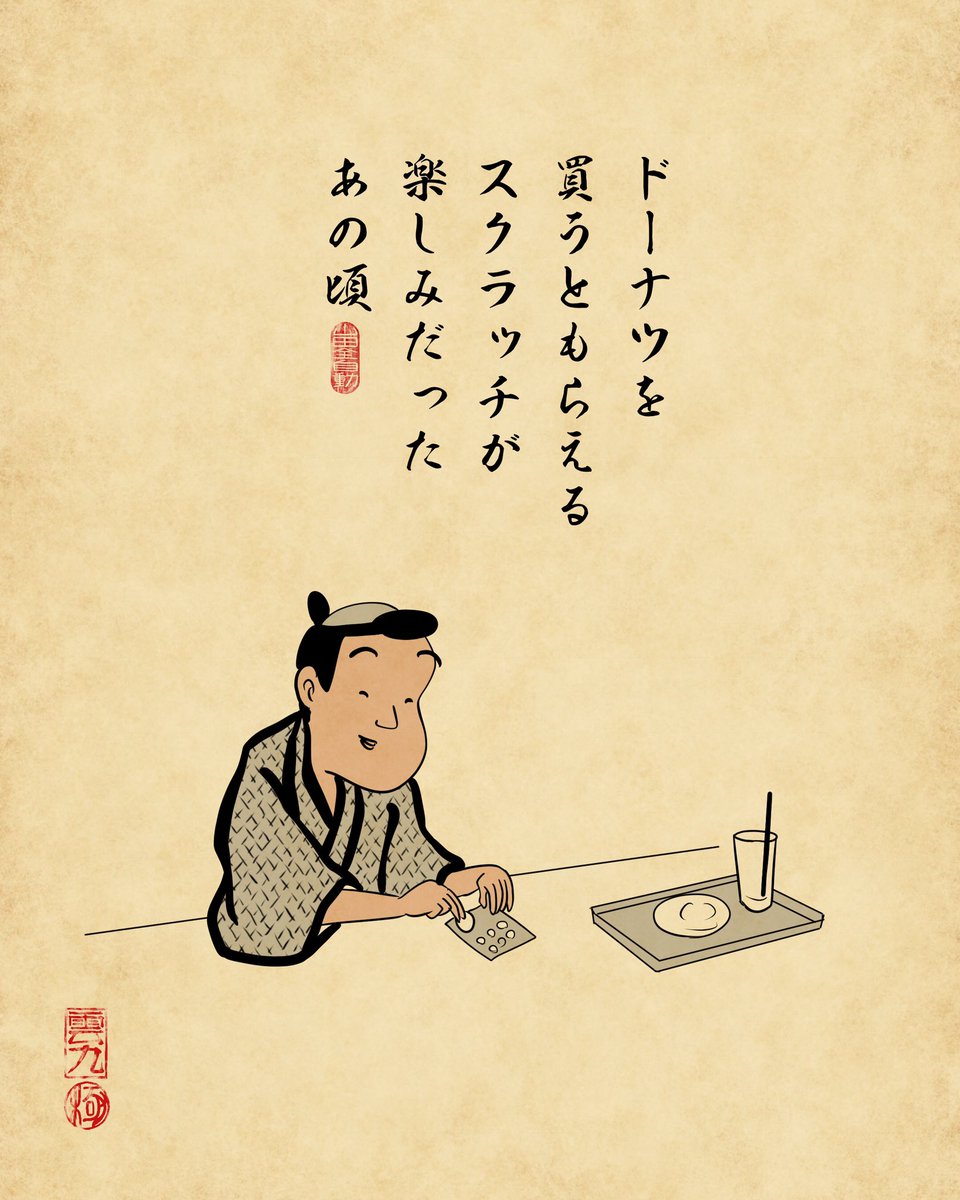 ドーナツを
買うともらえる
スクラッチが
楽しみだった
あの頃
雲九
極